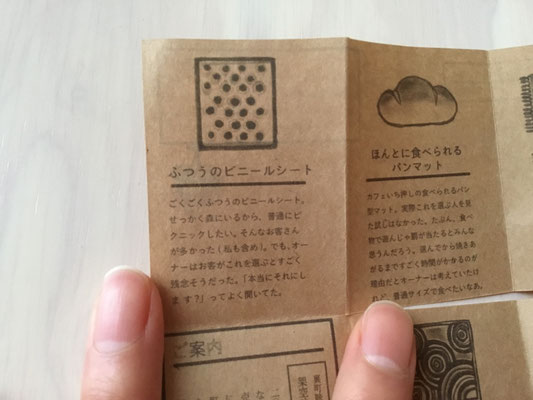 ふつうのビニールシート
ごくごくふつうのビニールシート。
せっかく森にいるから、普通にピ
クニックしたい。そんなお客さん
が多かった(私も含め)。でも、オー
ナーはお客がこれを選ぶとすごく
残念そうだった。「本当にそれにし
ます?」ってよく聞いてた。
ほんとに食べられる
パンマット
カフェいち押しの食べられるパン
型マット。実際これを選ぶ人を見
た試しはなかった。たぶん、食べ
物で遊んじゃ罰が当たるとみんな
思うんだろう。選んでから焼きあ
がるまですごく時間がかかるのが
理由だとオーナーは考えていたけ
れど、普通サイズで食べたいなあ。
ご案内